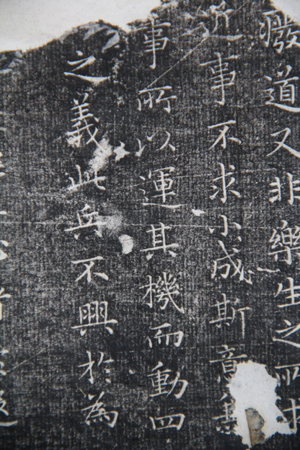 廢道又非樂生之所求
近事不求小成斯意兼
事所以運其機而動四
之義此兵不興於為